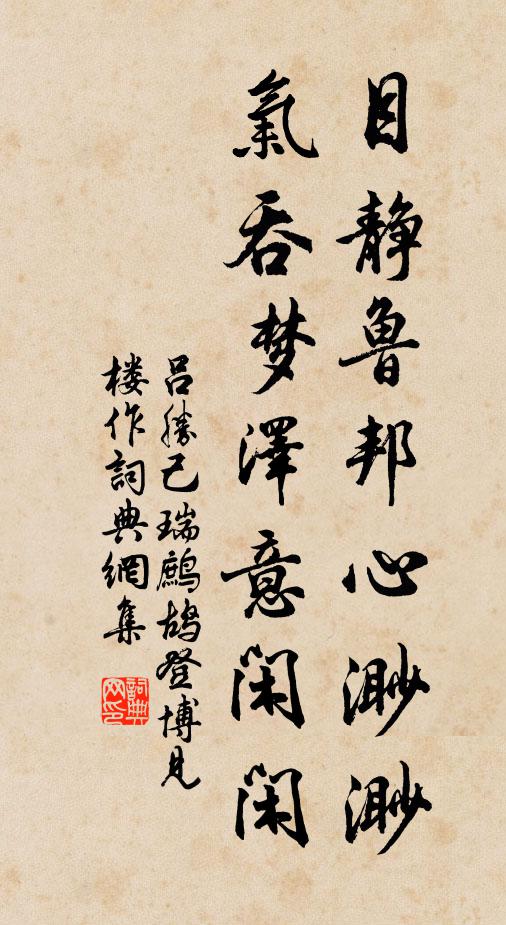 目静魯邦心渺渺
氣吞梦澤意闲闲
吕勝己瑞鹧鸪登博见
楼作詞典網集
詞典网印